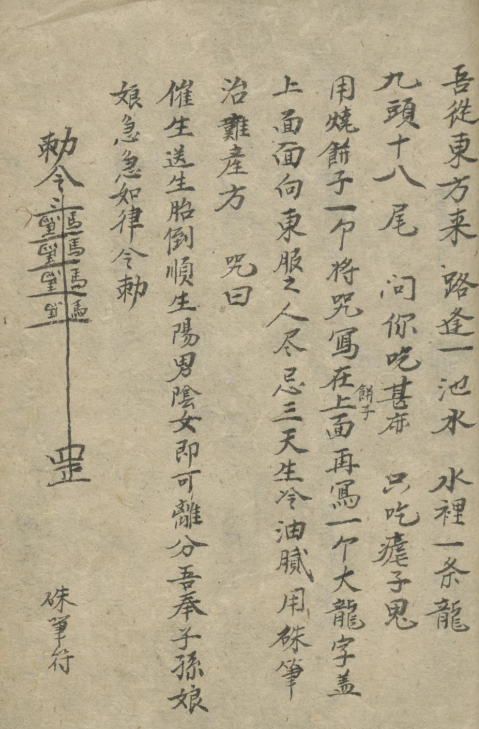 吾從東方来 路逢一池水 水裡一条龍
九頭十八尾 问你吃甚 只吃瘧子鬼
用燒餅子一个將咒寫在上面再寫一个大龍字盖
餅子
上面面向東服之人尽忌三天生冷油膩用硃筆
治難產方 咒曰
催生送生胎倒順生陽男陰女即可離分吾奉子孫娘
娘急急如律令勅
勅令
馬馬馬馬
罡
硃筆符